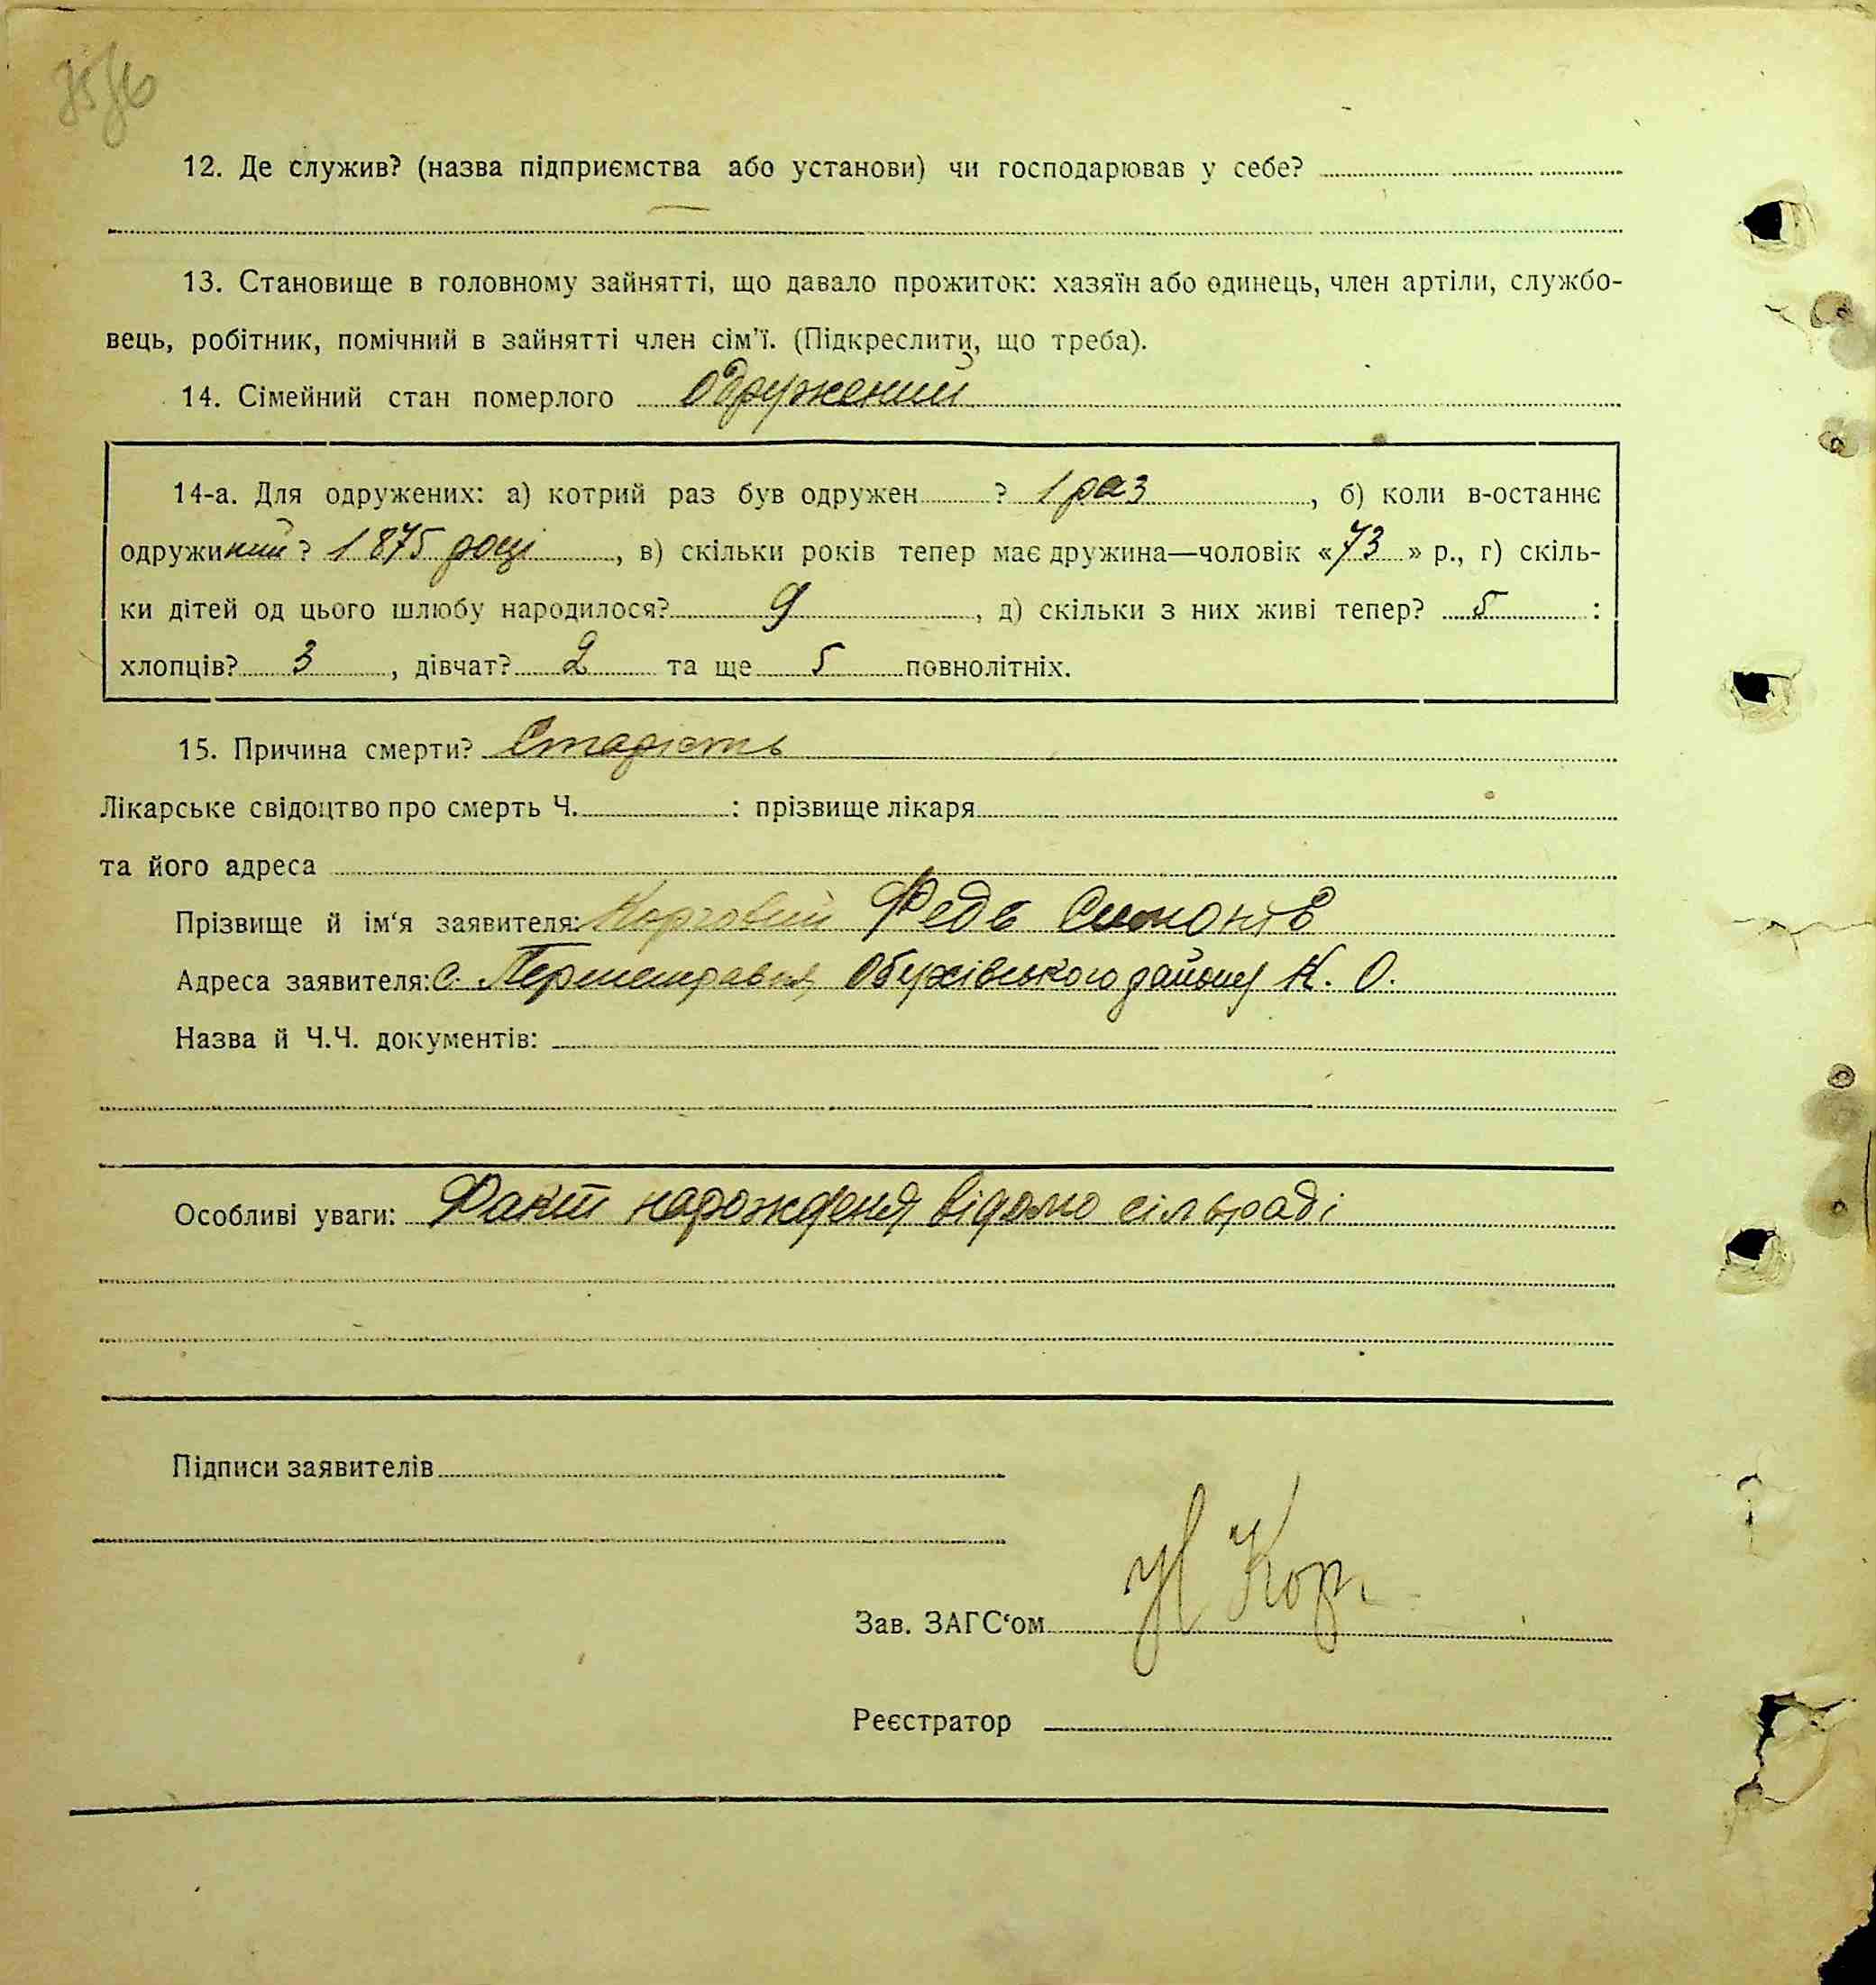 12. Де служив? (назва підприємства або установи) чи господарював у себе?
13. Становище в головному зайнятті, що давало прожиток: хазяїн або одинець, член артіли, службо-
вець, робітник, помічний в зайнятті член сім'ї. (Підкреслити, що треба).
14. Сімейний стан померлого одружений
14-а. Для одружених: а) котрий раз був одружен ? 1 раз , б) коли в-останнє
одружиний ? 1875 році , в) скільки років тепер має дружина—чоловік «73» р., г) скіль-
ки дітей од цього шлюбу народилося? 9 , д) скільки з них живі тепер? 5 :
хлопців? 3 , дівчат? 2 та ще 5 повнолітніх.
15. Причина смерти? Старість
Лікарське свідоцтво про смерть Ч. : прізвище лікаря
та його адреса
Прізвище й ім'я заявителя: Федь
Адреса заявителя: с. Обухівського району К. О.
Назва й Ч.Ч. документів:
Особливі уваги: Факт нарожденя відомо сільраді
Підписи заявителів
Зав. ЗАГС'ом
Реєстратор